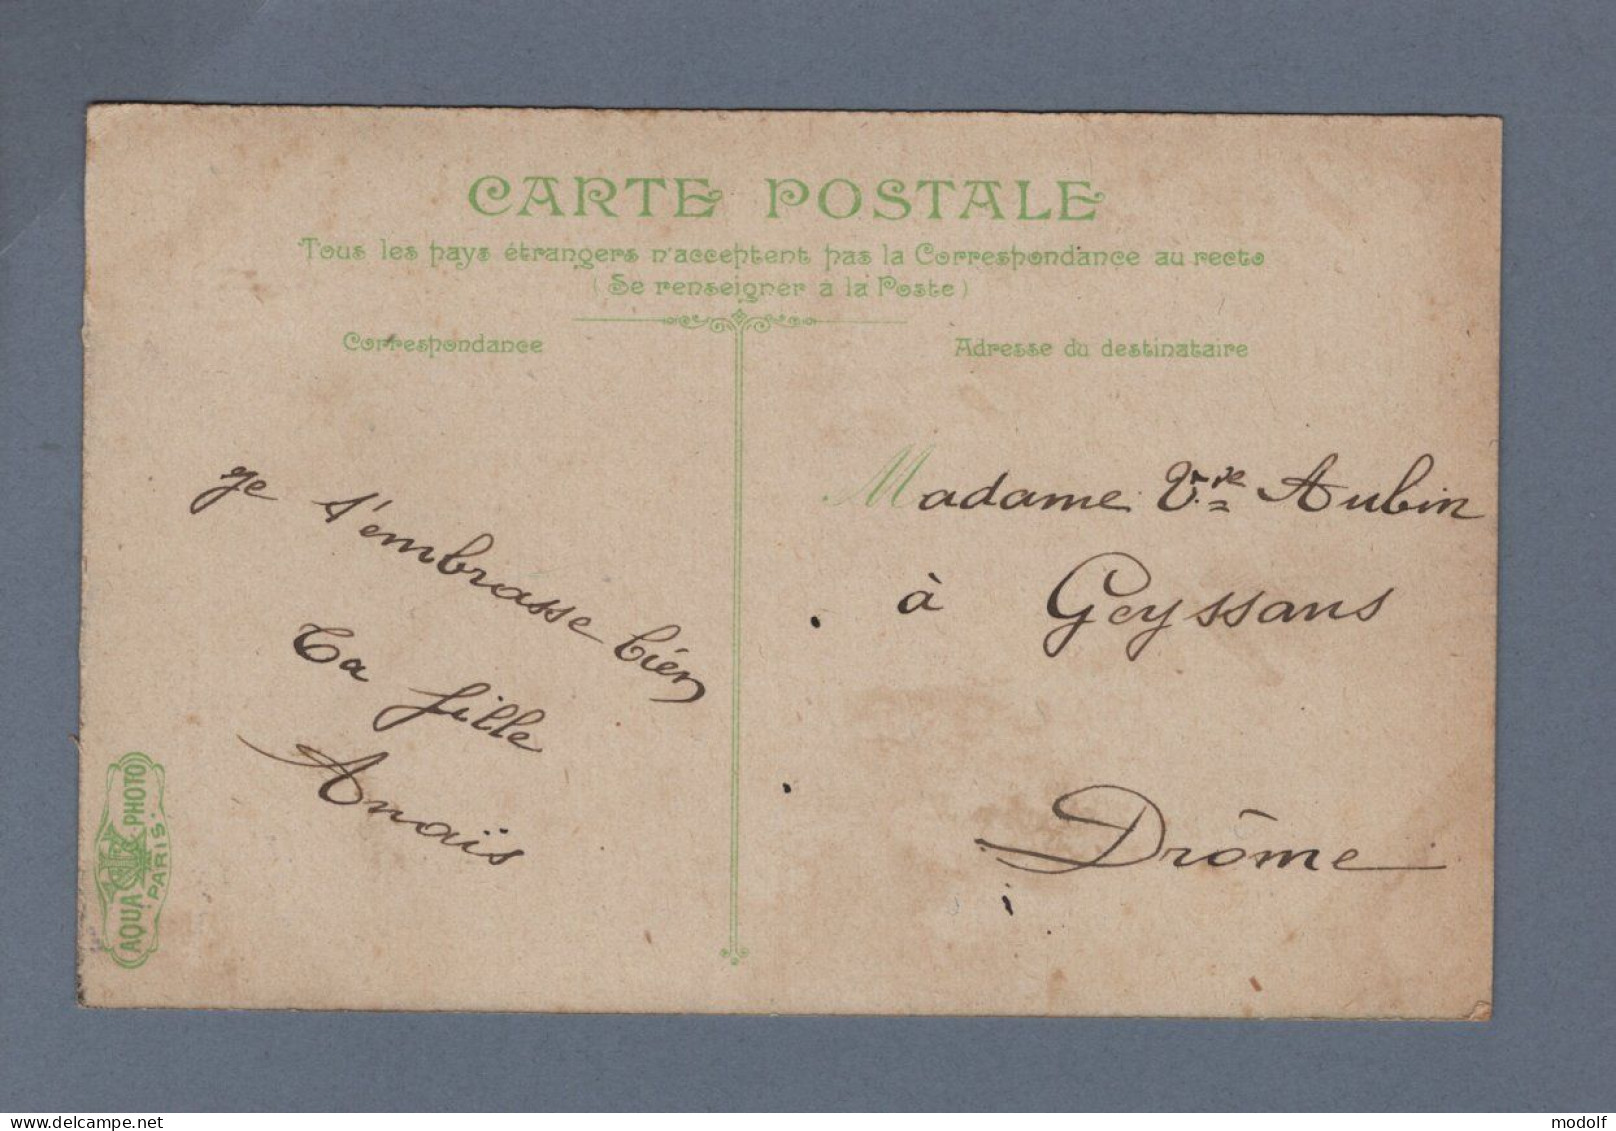 CARTE POSTALE
Tous les pays étrangers n'acceptent pas la Correspondance au recto
(Se renseigner à la Poste)
Correspondance
Je t'embrasse bien
Ta fille
Anaïs
Adresse du destinataire
Madame Vve Aubin
à Geyssans
Drôme
AQUA PHOTO
PARIS
www.delcampe.net
modolf